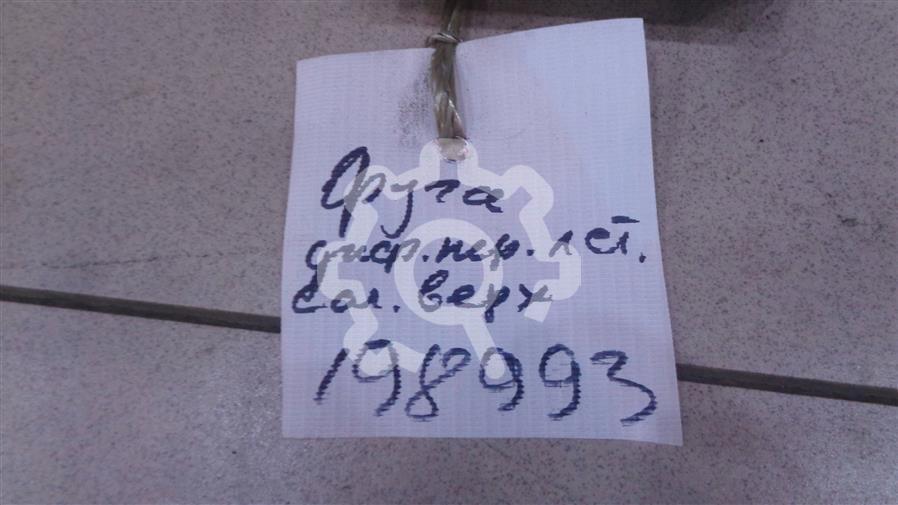 Фуга
диф. пер. лев.
сал. верх
198993